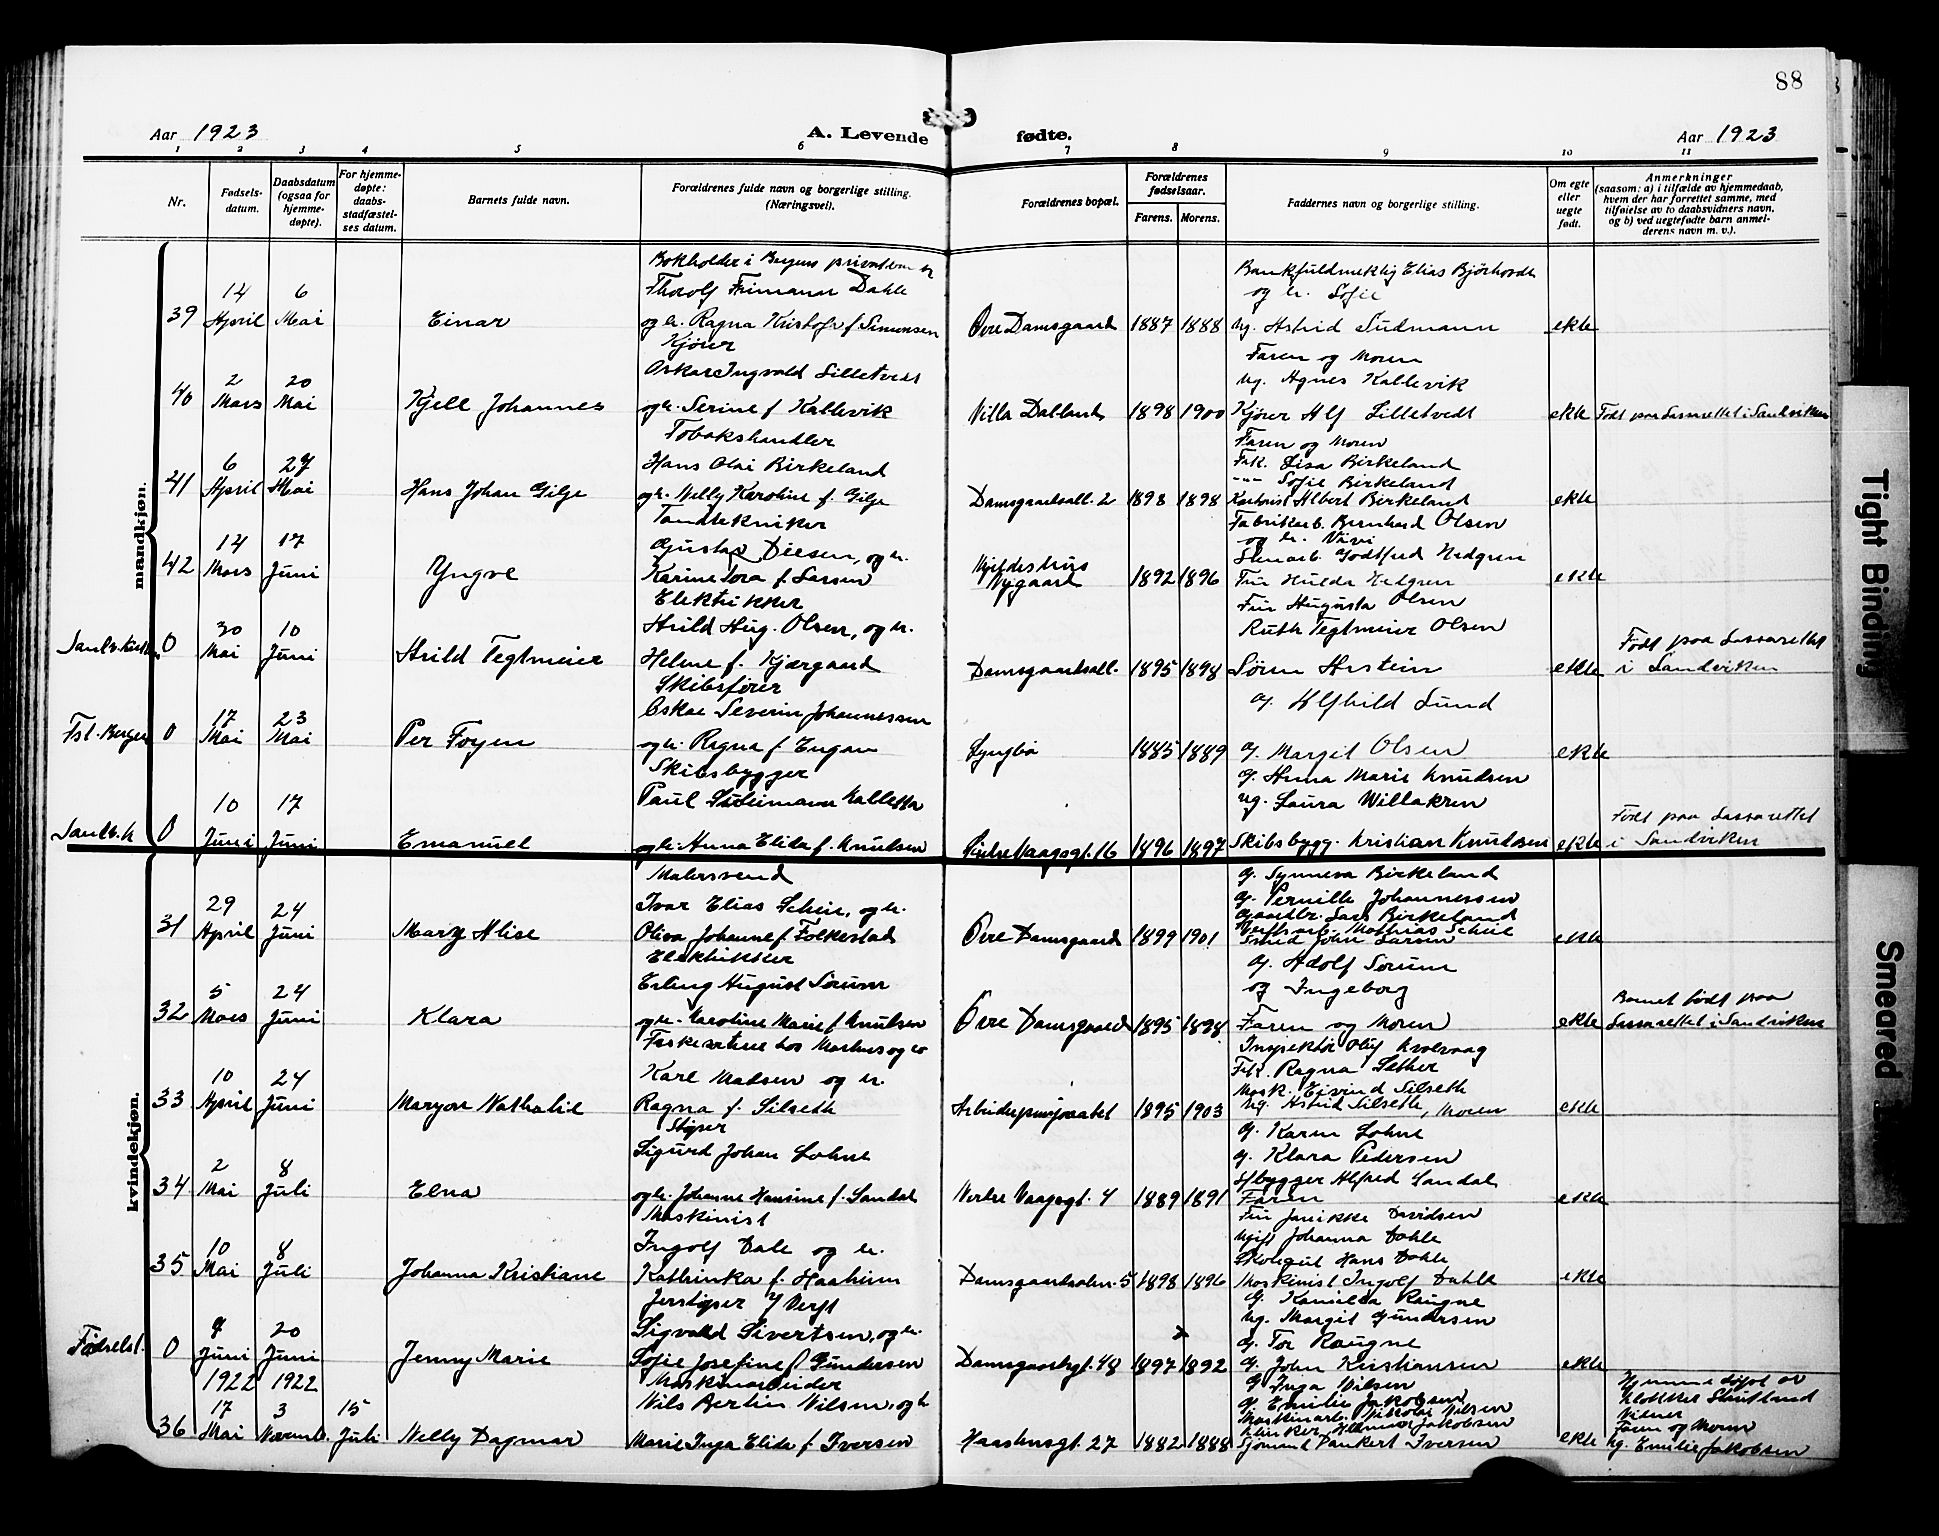 88
Aar 1923
A. Levende fødte.
Aar 1923
1 2 3 4 5 6 7 8 9 10 11
Nr.
Fødsels-
datum.
Daabsdatum
(ogsaa for
hjemme-
døpte).
For hjemme-
døpte:
daabs-
stadfæstel-
ses datum.
Barnets fulde navn.
Forældrenes fulde navn og borgerlige stilling.
(Næringsvei).
Forældrenes bopæl.
Forældrenes
fødselsaar.
Farens. Morens.
Faddernes navn og borgerlige stilling.
Om egte
eller
uegte
født.
Anmerkninger
(saasom: a) i tilfælde av hjemmedaab,
hvem der har forrettet samme, med
tilføielse av to daabsvidners navn,
og b) ved uegtefødte barn anmel-
derens navn m. v.).
mandkjøn.
39
14 April
6 Mai
Einar
Bokholder i Bergens
Thorolf Frimann Dahle
og h. Ragna Kristofa f. Simonsen
Øvre Damsgaard 1887 1888
Elias Bjørhovde
og h. Sofie
ug. Astrid Sudmann
ekte
40
2 Mars
20 Mai
Kjell Johannes
Kjører
Oskar Ingvald Lilletvedt
og h. Serine f. Kallevik
Villa Dalland 1898 1900
Faren og Moren
ug. Agnes Kallevik
Kjører Alf Lilletvedt
ekte
Født paa Lassarettet i Sandviken
41
6 April
27 Mai
Hans Johan Gilje
Tobakshandler
Hans Olai Birkeland
og h. Nelly Karoline f. Gilje
Damsgaardsall. 2 1898 1898
Faren og Moren
Frk. Lisa Birkeland
-"- Sofie Birkeland
Albert Birkeland
ekte
42
14 Mars
17 Juni
Yngve
Tandtekniker
Gustav Diesen, og h.
Karine Tora f. Larsen
Nygaard 1892 1896
Fabrikarb. Bernhard Olsen
og h. Vivi
Godtfred Hedgren
Fru Hulda Hedgren
ekte
0
30 Mai
10 Juni
Arild Tegtmeier
Elektrikker
Arild Aug. Olsen, og h.
Helene f. Kjærgaard
Damsgaardsall. 1895 1898
Fru Augusta Olsen
Ruth Tegtmeier Olsen
Søren Arstein
ekte
Født paa Lassarettet
i Sandviken
Fst. Bergen
0
17 Mai
23 Mai
Per Foyen
Skibsfører
Oskar Severin Johannessen
og h. Ragna f. Engan
Lyngbø 1885 1889
g. Alfhild Lund
g. Margit Olsen
ekte
Sandv. k.
0
10 Juni
17 Juni
Emanuel
Skibsbygger
Paul
og h. Anna Elida f. Knutsen
1896 1897
g. Anna Marie Knudsen
ug. Laura Willaksen
Skibsbygg. Kristian Knudsen
ekte
Født paa Lassarettet
i Sandviken
kvindekjøn.
31
29 April
24 Juni
Mary Alise
Malersvend
Ivar Elias Scheie, og h.
Oliva Johanne f. Folkestad
Øvre Damsgaard 1899 1901
g. Synneva Birkeland
g. Pernille Johannessen
Gaardbr. Lars Birkeland
Verftsarb. Mathias Scheie
Smed John Larsen
ekte
32
5 Mars
24 Juni
Klara
Elektrikker
Erling August Sørum
og h. Karoline Marie f. Knutsen
Øvre Damsgaard 1895 1898
g. Adolf Sørum
og Ingeborg
Faren og Moren
ekte
Barnet født paa
Lassarettet i Sandviken
33
10 April
24 Juni
Maryon Nathalie
Karl Madsen og h.
Ragna f. Silseth
1895 1903
Inspektør Oluf Kvalvaag
Frk. Ragna Sether
Mask. Eivind Silseth
ug. Astrid Silseth, Moren
ekte
34
2 Mai
8 Juli
Elna
Støper
Sigurd Johan Lohne
og h. Johanne Hansine f. Sandal
Nedre Vaagsgt. 4 1889 1891
g. Karen Lohne
g. Klara Pedersen
Alfred Sandal
Faren
ekte
35
10 Mai
8 Juli
Johanna Kristiane
Maskinist
Ingolf Dale og h.
Kathinka f. Haaheim
5 1898 1896
Fru Janikke Davidsen
ugift Johanna Dahle
Hans Dahle
Maskinist Ingolf Dahle
ekte
Fødselst.
0
7 Juni
20 Juni
Jenny Marie
Jernstøper v/ Verft
Sigvald Sivertsen, og h.
Sofie Josefine f. Gundersen
Damsgaardsgt. 48 1897 1892
g. Kamilla Raugne
ug. Margit Gundersen
g. Tor Raugne
g. John Kristiansen
ekte
36
1922 17 Mai
1922 3 Novemb.
15 Juli
Nelly Dagmar
Maskinarbeider
Nils Bertin Nilsen, og h.
Marie Inga Elida f. Iversen
Haahusgt. 27 1882 1888
g. Inga Nilsen
g. Emilie Jakobsen
Maskinarb. Nikolai Nilsen
Sjømand Iversen
ekte
Hjemmedøpt av
Klokker
Faren og Moren
ug. Emilie Jakobsen
Tight Binding
Smeared